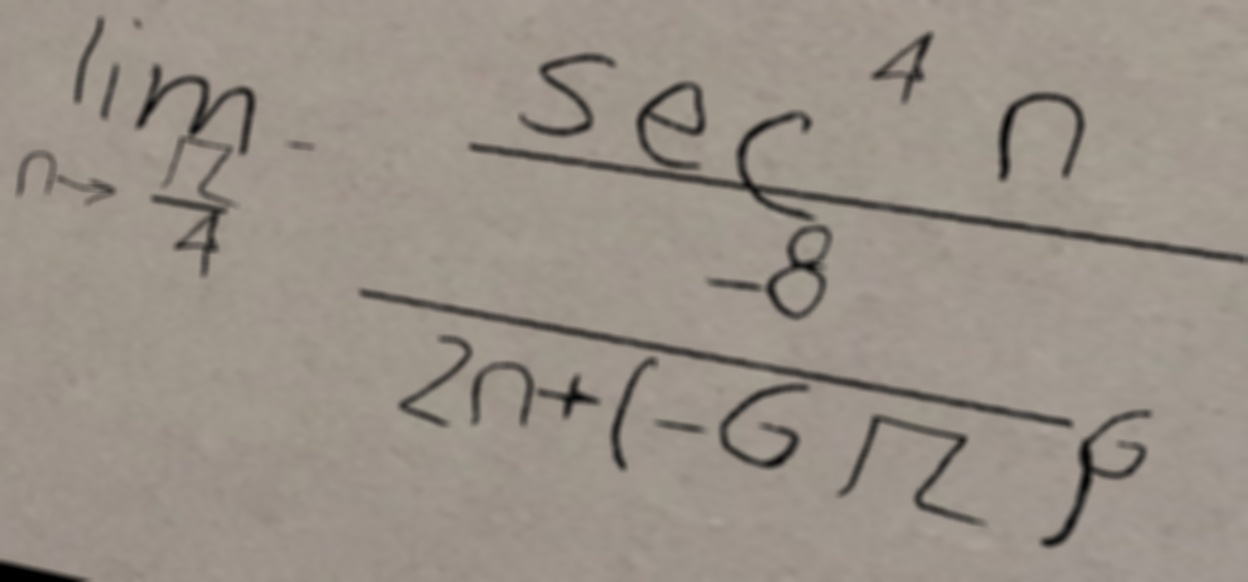 lim n→π/4 - sec^4 n
-8
2n+(-6π)^6